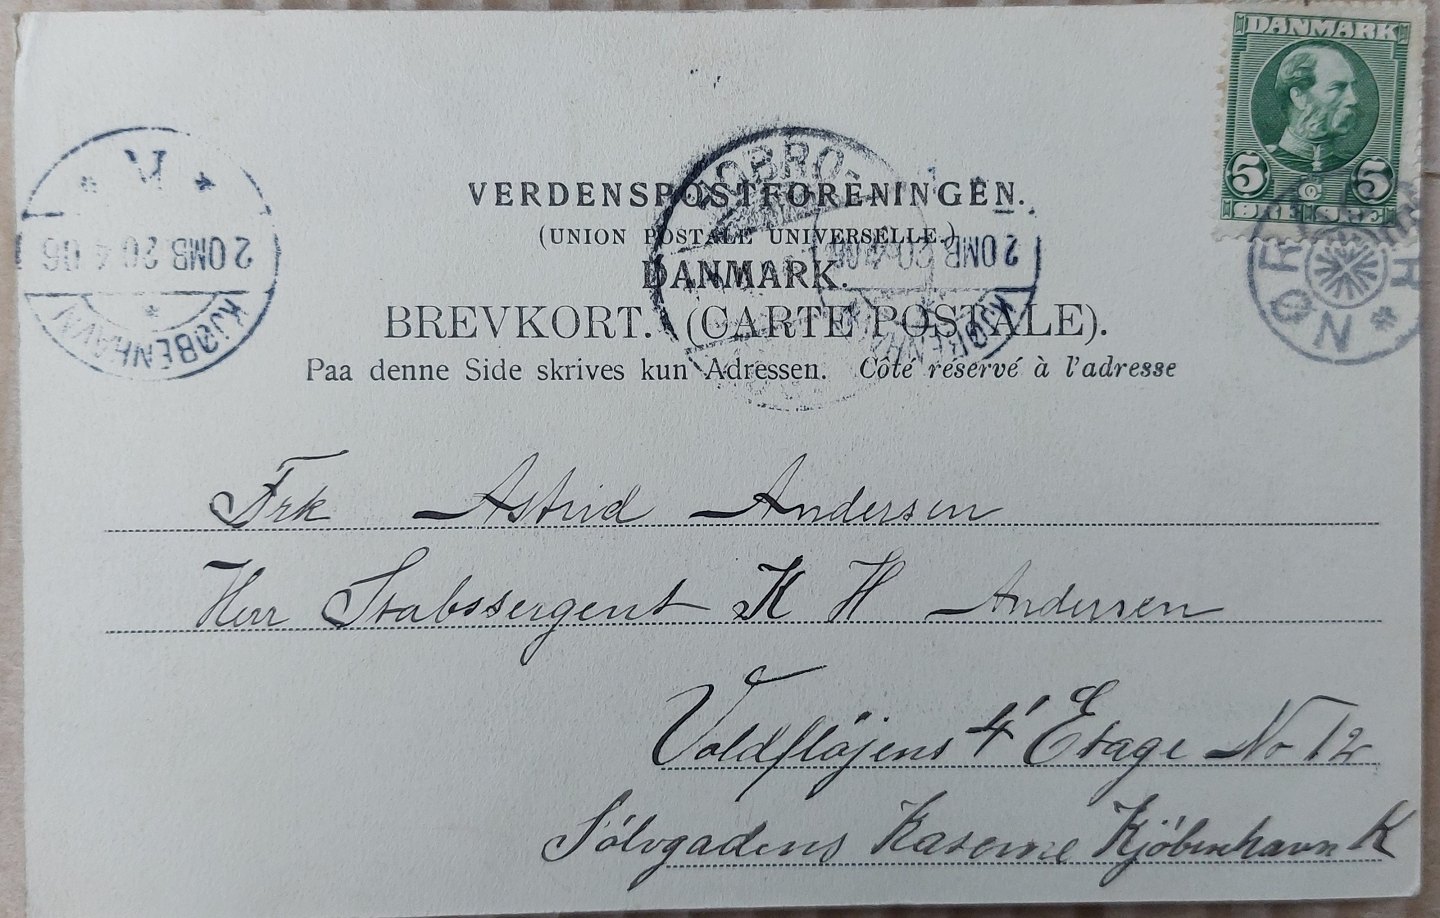 DANMARK
5 5
ØRE ØRE
K
2 OMB 20.4.06
KJØBENHAVN
HOBRO
2 OMB 20.4.06
KJØBENHAVN
NØRR
VERDENSPOSTFORENINGEN.
(UNION POSTALE UNIVERSELLE.)
DANMARK.
BREVKORT. (CARTE POSTALE).
Paa denne Side skrives kun Adressen. Côté réservé à l'adresse
Frk Astrid Andersen
Herr Stabssergent K H Andersen
Voldfløjens 4' Etage No 12
Sölvgadens Kaserne Kjöbenhavn K